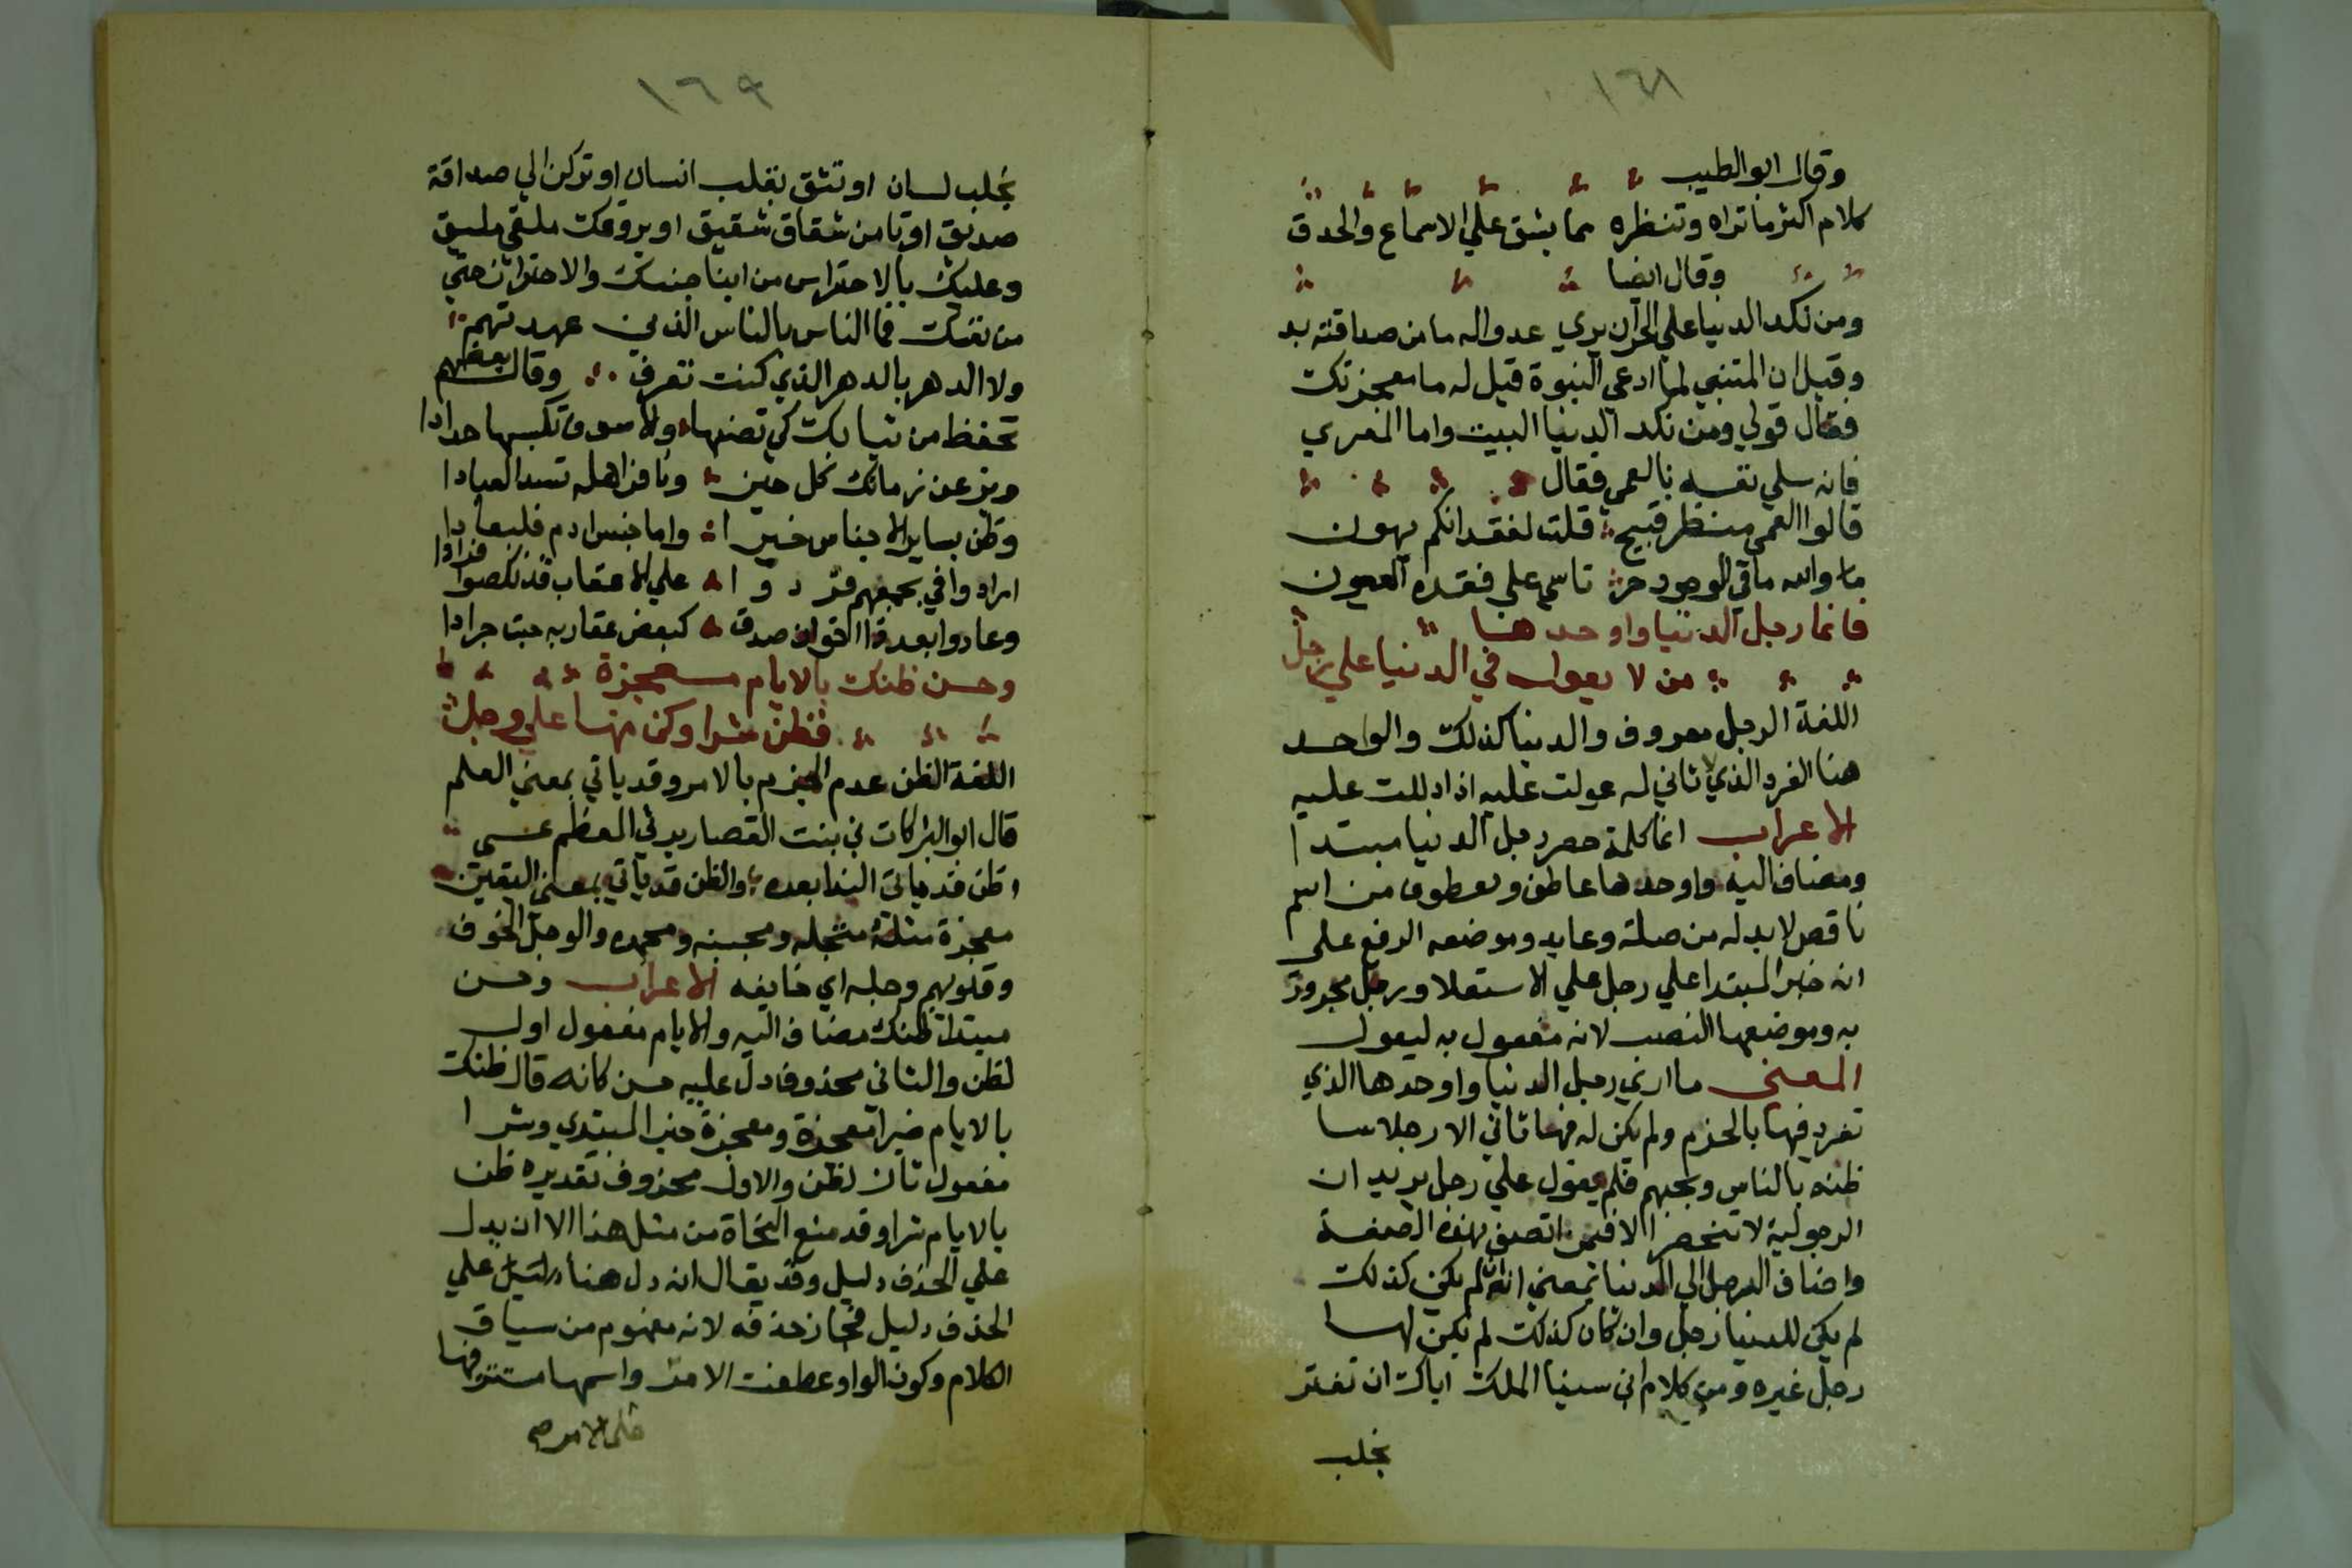 ١٦٨
وقال ابو الطيب
كلام اكثر ما تراه وتنظره مما يشق علي الاسماع والحدق
وقال ايضا
ومن نكد الدنيا علي الحر ان يري عدوا له ما من صداقته بد
وقيل ان المتنبي لما ادعي النبوة قيل له ما معجزتك
فقال قولي ومن نكد الدنيا البيت واما المعري
فانه سلي نفسه بالعمي فقال
قالوا العمي منظر قبيح قلت لفقدانكم يهون
والله ما في الوجود حر تاسي علي فقده العيون
فانما رجل الدنيا واوحدها
من لا يعول في الدنيا علي رجل
اللغة الرجل معروف والدنيا كذلك والواحد
هنا الفرد الذي لا ثاني له عولت عليه اذا دللت عليه
الاعراب انما كلمة حصر رجل الدنيا مبتدا
ومضاف اليه واوحدها عاطف ومعطوف من اسم
ناقص لا بد له من صلة وعايد وموضعه الرفع علي
انه خبر المبتدا علي رجل علي الاستعلا ورجل مجرور
به وموضعها النصب لانه مفعول به ليعول
المعني ما اري رجل الدنيا واوحدها الذي
تفرد فيها بالحزم ولم يكن له فيها ثاني الا رجلا سا
ظنه بالناس وبحبهم فلم يعول علي رجل يريد ان
الرجولية لا تنحصر الا فيمن اتصف بهذه الصفة
واضاف الرجل الي الدنيا بمعني انه لم يكن كذلك
لم يكن للدنيا رجل وان كان كذلك لم يكن لها
رجل غيره ومن كلام ابن سينا الملك اياك ان تغتر
بخلب
١٦٩
بخلب لسان او تثق بقلب انسان او تركن الي صداقة
صديق او تامن شقاق شقيق او يروقك ملقي ملبق
وعليك بالاحتراس من ابنا جنسك والاحتراز حتي
من نفسك فما الناس بالناس الذين عهدتهم
ولا الدهر بالدهر الذي كنت تعرف وقال بعضهم
تحفظ من ثيابك كي تصنها ولا سوف تلبسها حدادا
وثق عن زمانك كل حين ونافر اهله تسد العبادا
وظن بساير الاجناس خيرا واما جنس ادم فلبعادا
ارادوني بجمعهم فردوا علي الاعقاب قد نكصوا فرادا
وعادوا بعد ذا اخوان صدق كبعض عقارب عبت جرادا
وحسن ظنك بالايام معجزة
فظن شرا وكن منها علي وجل
اللغة الظن عدم الجزم بالامر وقد ياتي بمعني العلم
قال ابو البركات في بنت القصار يرثي المعظم عسي
اظن فد ياتي الندا بعده والظن قد ياتي بمعني اليقين
معجزة مثلة مبخله ومجبنه ومحمده والوجل الخوف
وقلوبهم وجلة اي خايفه الاعراب وحسن
مبتدا ظنك مضاف اليه والايام مفعول اول
لظن والثاني محذوف دل عليه حسن كانه قال ظنك
بالايام خيرا معجزة ومعجزة خبر المبتدي وشرا
مفعول ثان لظن والاول محذوف تقديره ظن
بالايام شرا وقد منع النحاة من مثل هذا الا ان يدل
علي الحذف دليل وقد يقال انه دل هنا دليل علي
الحذف دليل فجاز حذفه لانه مفهوم من سياق
الكلام وكون الواو عطفت الامر واسمها مستتر فيها